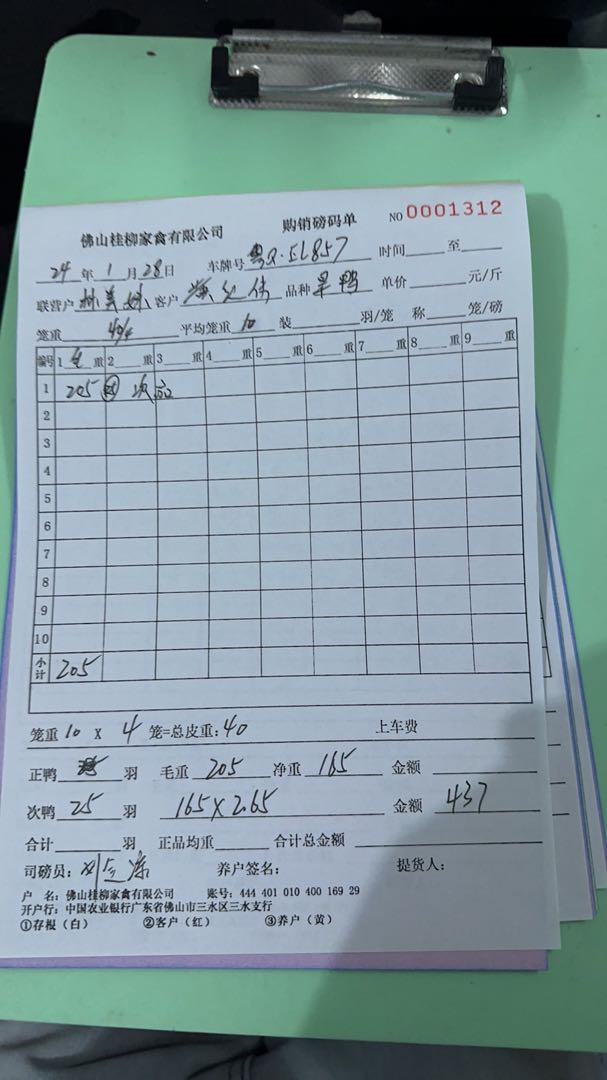 佛山桂柳家禽有限公司 购销磅码单 NO 0001312
24年1月28日 车牌号 粤Q·5L857 时间 至
联营户 林美妹 客户 品种 果鸭 单价 元/斤
笼重 40/4 平均笼重 10 装 羽/笼 称 笼/磅
编号 1 毛 重 2 重 3 重 4 重 5 重 6 重 7 重 8 重 9 重
1 205 次品
2
3
4
5
6
7
8
9
10
小计 205
笼重 10 X 4 笼=总皮重: 40 上车费
正鸭 羽 毛重 205 净重 165 金额
次鸭 25 羽 165×2.65 金额 437
合计 羽 正品均重 合计总金额
司磅员: 养户签名: 提货人:
户 名: 佛山桂柳家禽有限公司 账号: 444 401 010 400 169 29
开户行: 中国农业银行广东省佛山市三水区三水支行
①存根(白) ②客户(红) ③养户(黄)